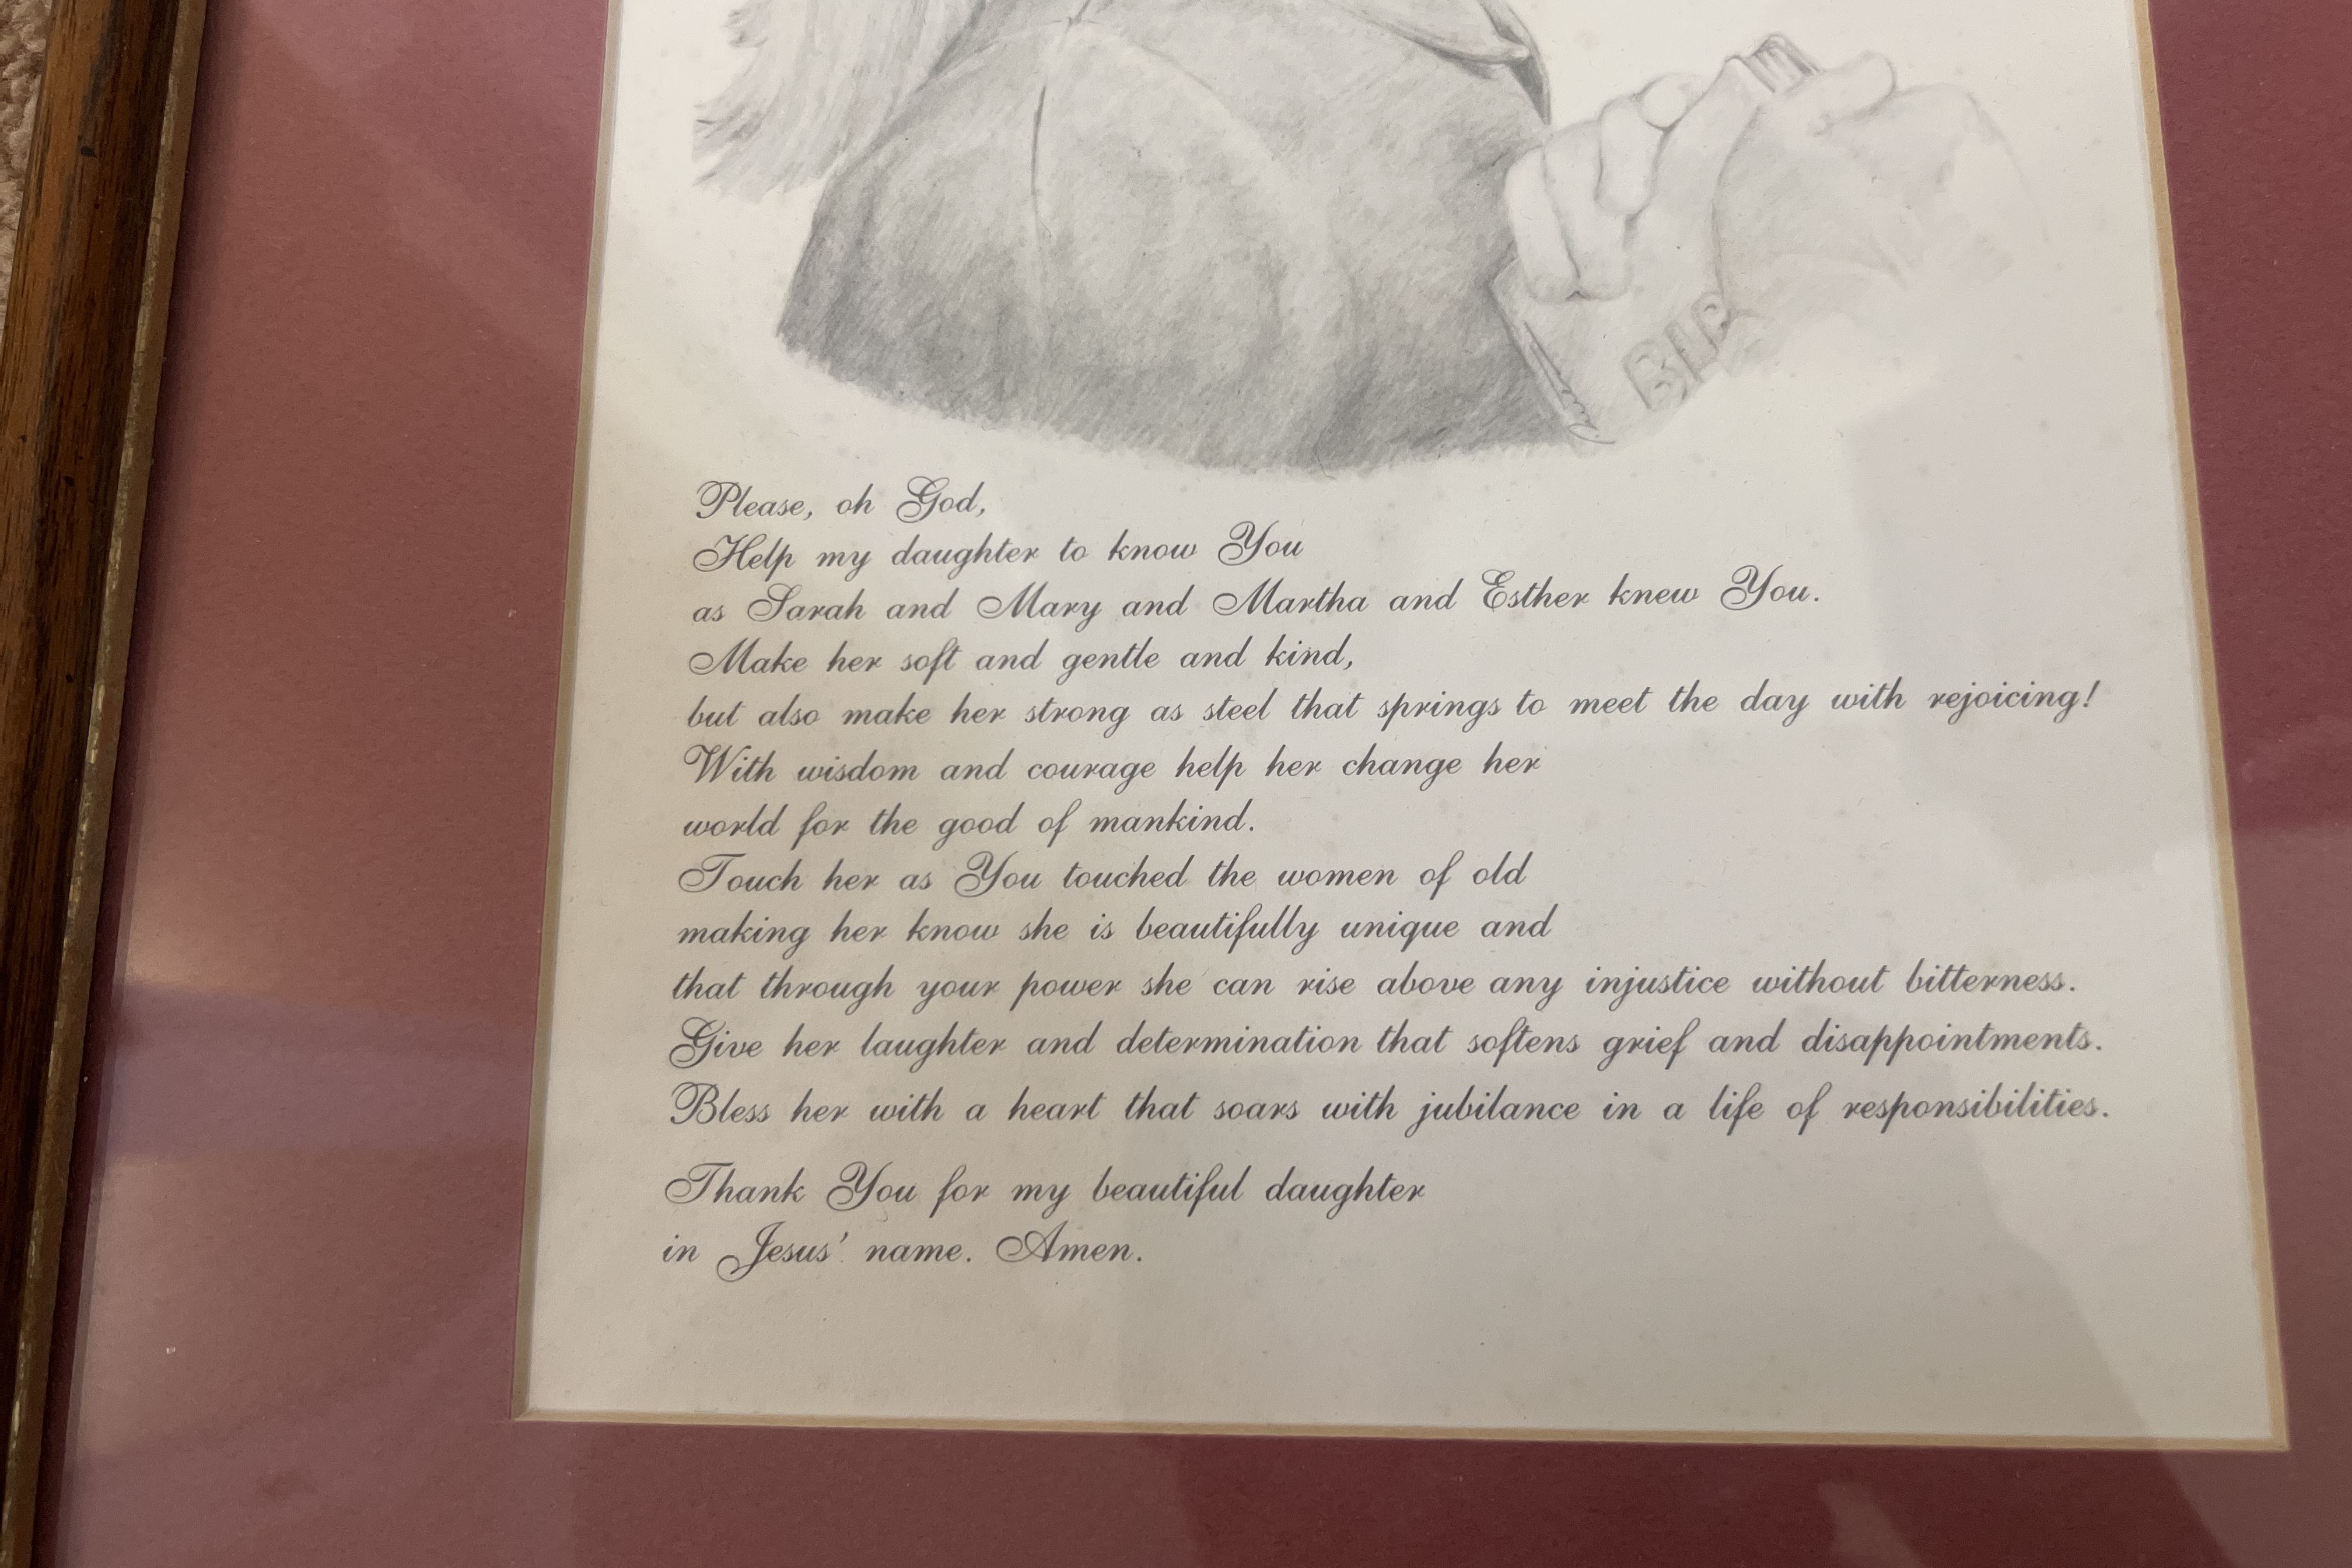 BIB
Please, oh God,
Help my daughter to know You
as Sarah and Mary and Martha and Esther knew You.
Make her soft and gentle and kind,
but also make her strong as steel that springs to meet the day with rejoicing!
With wisdom and courage help her change her
world for the good of mankind.
Touch her as You touched the women of old
making her know she is beautifully unique and
that through your power she can rise above any injustice without bitterness.
Give her laughter and determination that softens grief and disappointments.
Bless her with a heart that soars with jubilance in a life of responsibilities.
Thank You for my beautiful daughter
in Jesus' name. Amen.